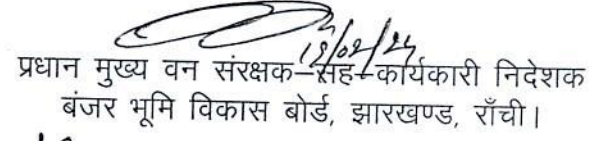 12/02/24
प्रधान मुख्य वन संरक्षक–सह–कार्यकारी निदेशक
बंजर भूमि विकास बोर्ड, झारखण्ड, राँची।